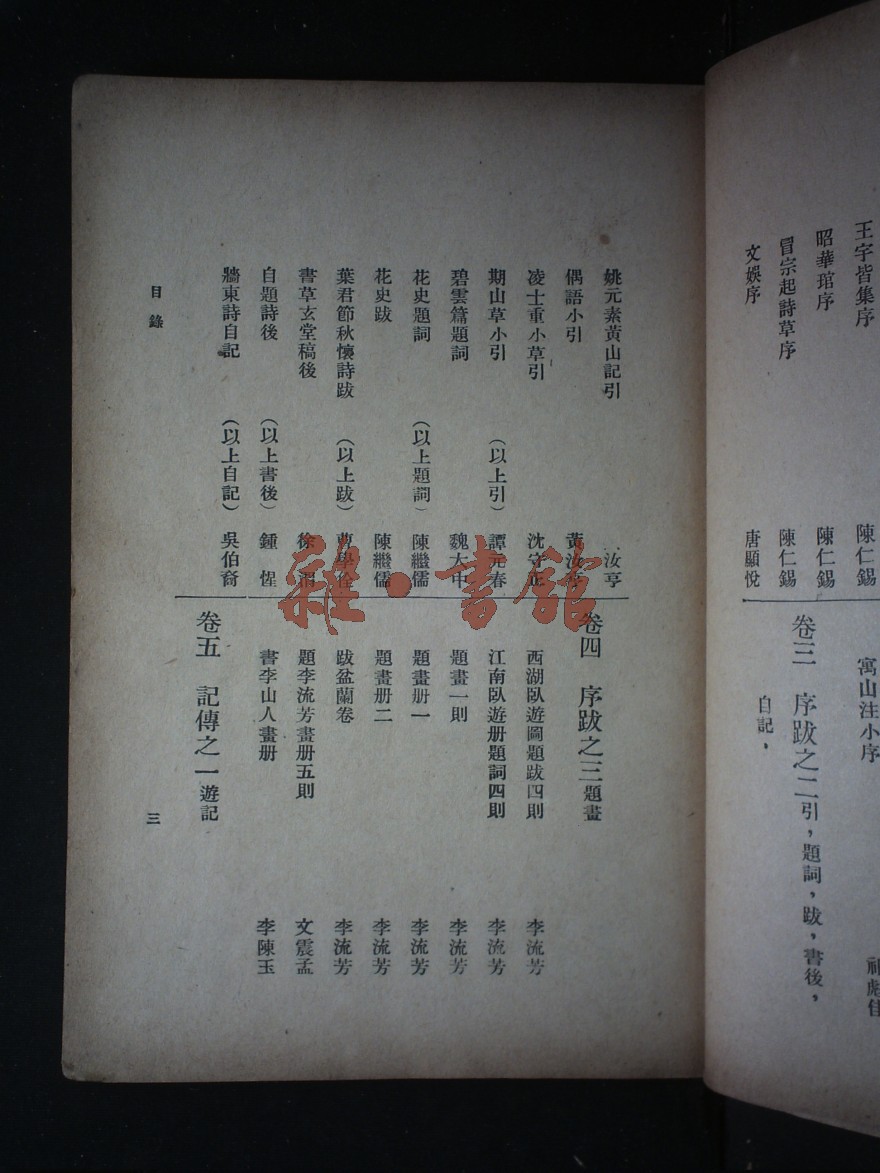 王宇皆集序 陳仁錫
昭華琯序 陳仁錫
冒宗起詩草序 陳仁錫
文娛序 唐顯悅
寓山注小序 祁彪佳
卷三 序跋之二引，題詞，跋，書後，
自記，
姚元素黃山記引 汝亨
偶語小引 黃汝亨
凌士重小草引 沈守正
期山草小引 （以上引） 譚元春
碧雲篇題詞 魏大中
花史題詞 （以上題詞） 陳繼儒
花史跋 陳繼儒
葉君節秋懷詩跋 （以上跋） 曹學佺
書草玄堂稿後 徐渭
自題詩後 （以上書後） 鍾惺
牆東詩自記 （以上自記） 吳伯裔
卷四 序跋之三題畫
西湖臥遊圖題跋四則 李流芳
江南臥遊册題詞四則 李流芳
題畫一則 李流芳
題畫册一 李流芳
題畫册二 李流芳
跋盆蘭卷 李流芳
題李流芳畫册五則 文震孟
書李山人畫册 李陳玉
卷五 記傳之一遊記
目錄
三
雜·書館